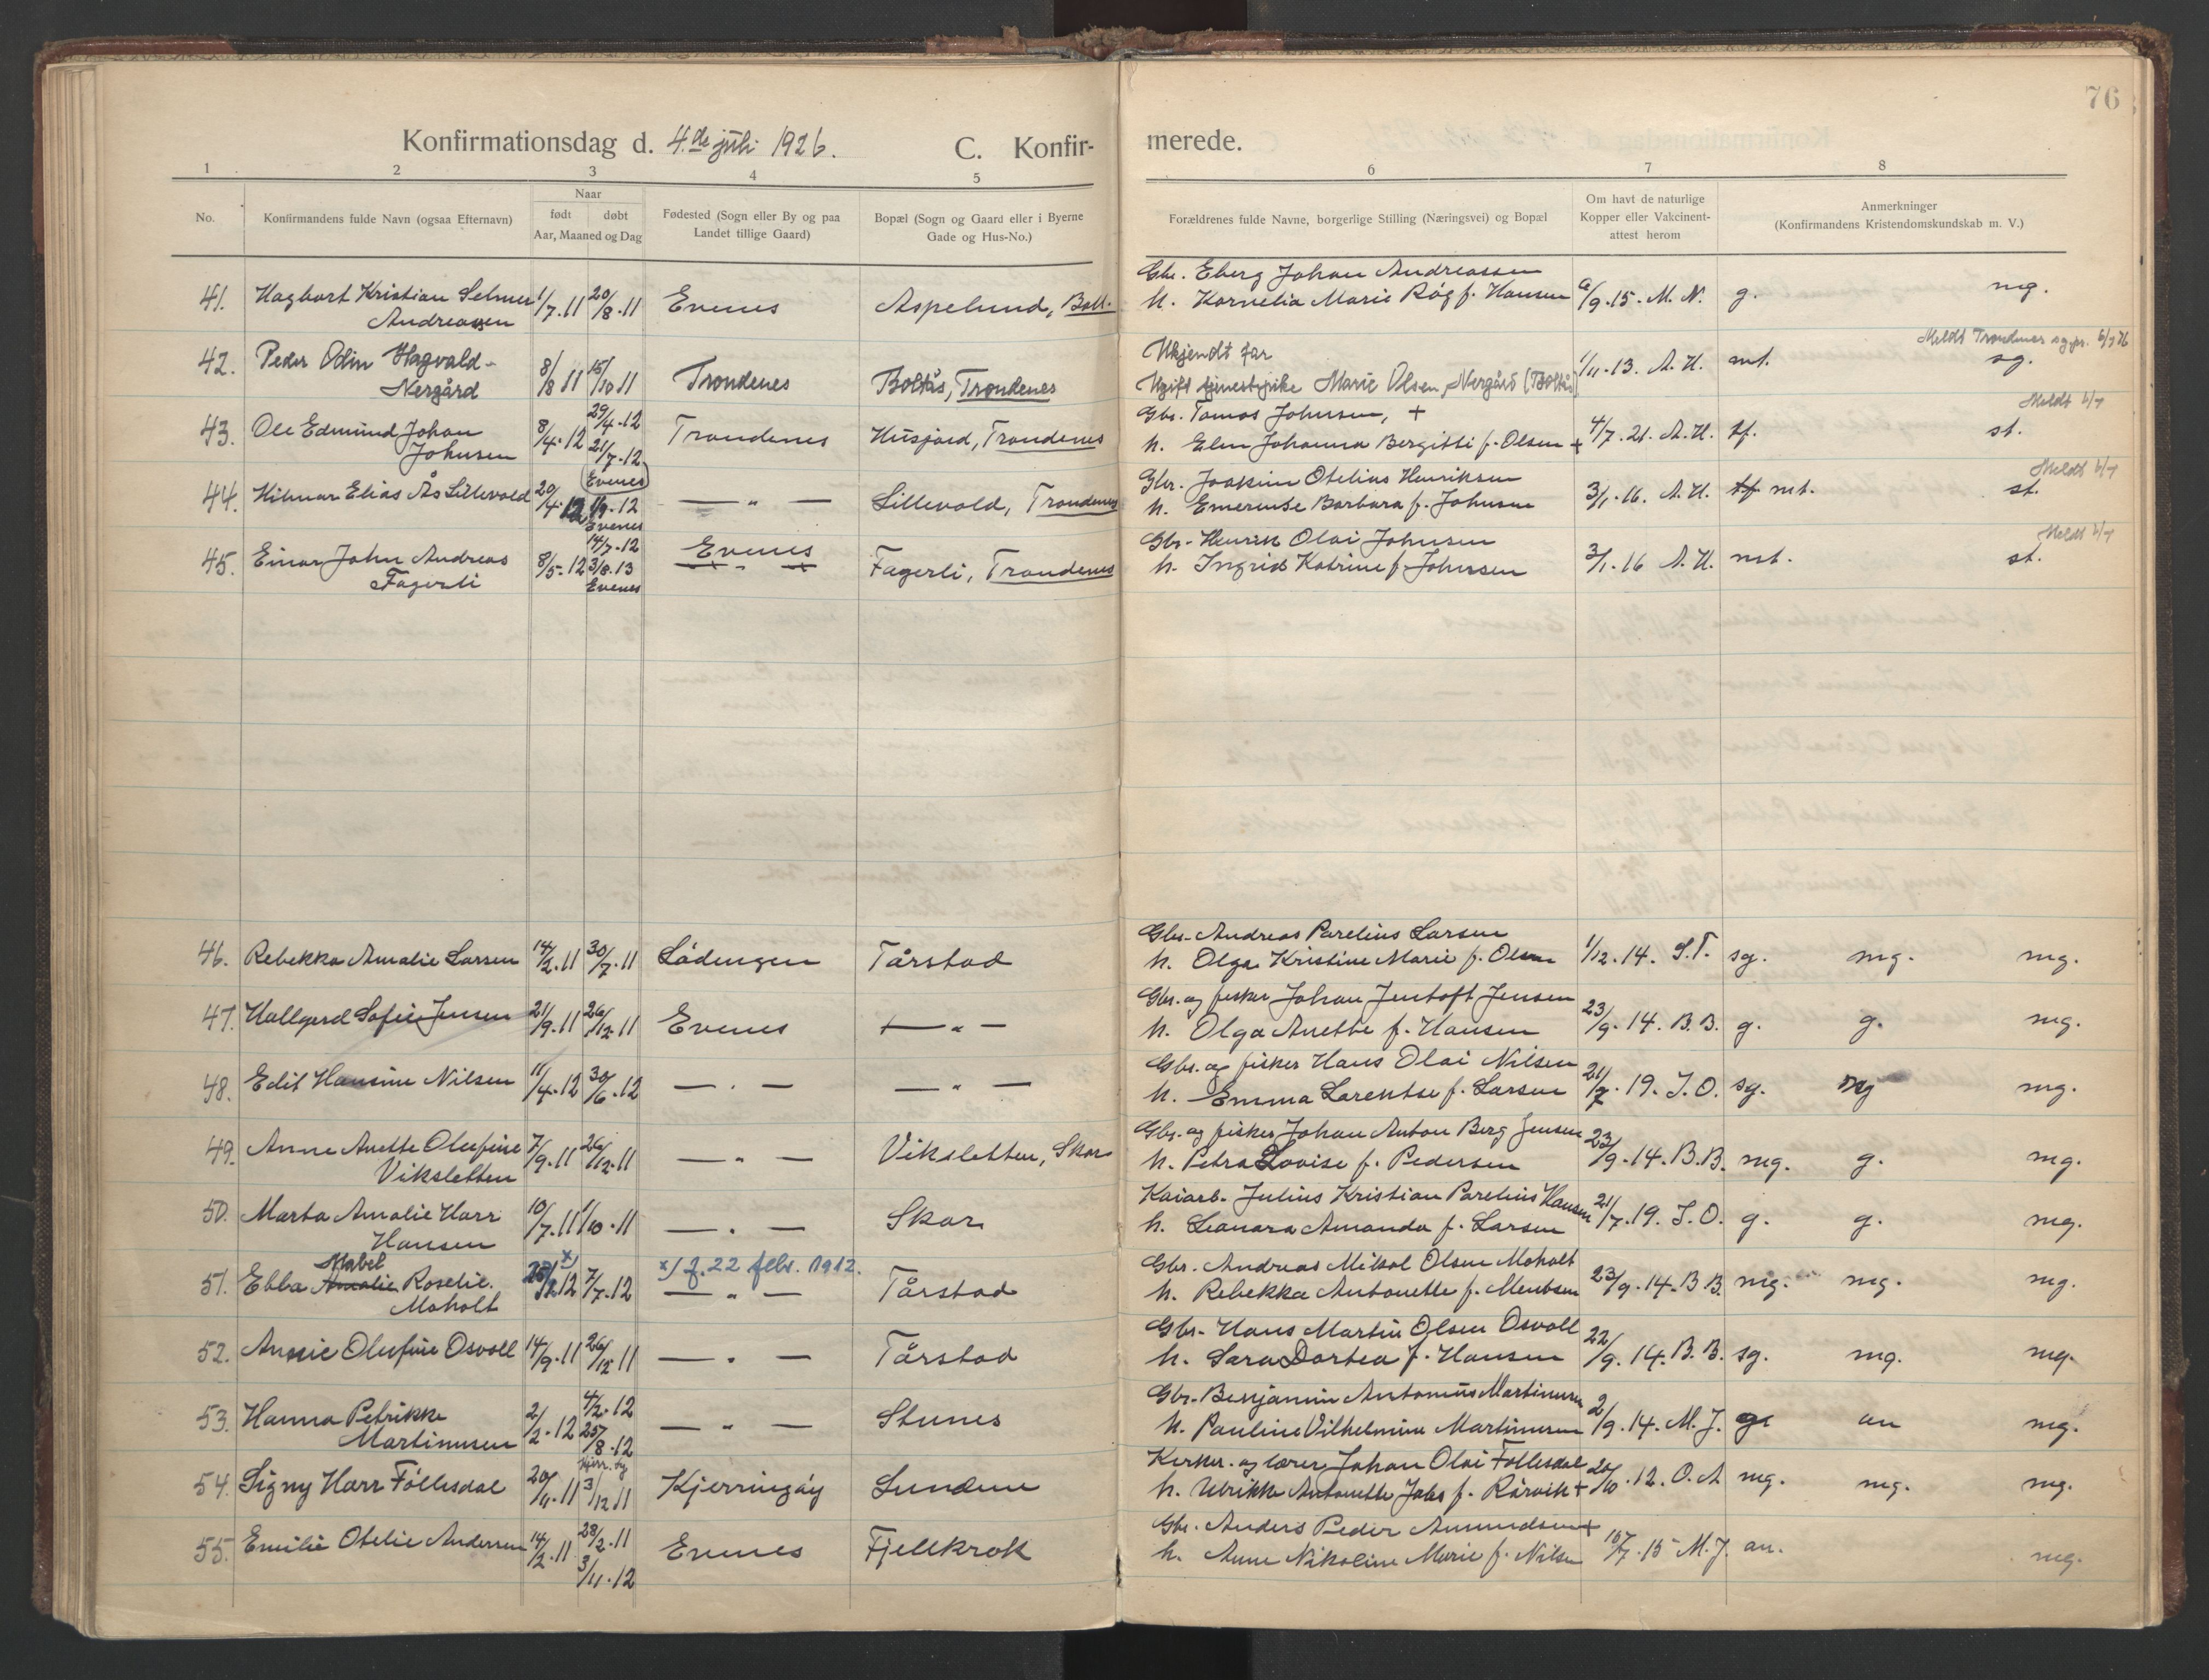 76
Konfirmationsdag d. 4.de juli 1926.
C. Konfir-
merede.
1 2 3 4 5 6 7 8
No.
Konfirmandens fulde Navn (ogsaa Efternavn)
Naar
født døbt
Aar, Maaned og Dag
Fødested (Sogn eller By og paa
Landet tillige Gaard)
Bopæl (Sogn og Gaard eller i Byerne
Gade og Hus-No.)
Forældrenes fulde Navne, borgerlige Stilling (Næringsvei) og Bopæl
Om havt de naturlige
Kopper eller Vakcinent-
attest herom
Anmerkninger
(Konfirmandens Kristendomskundskab m. V.)
41. Hagbart Kristian Selmer 1/7.11 20/8.11 Evenes Aspelund, Boll.
Andreassen
Gbr. Eberg Johan Andreassen
h. Kornelia Marie Røg f. Hansen /9.15. M. N. g. mg.
42. Peder Odin Hagvald- 8/8 11 15/10 11 Trondenes Boltås, Trondenes
Nergård
Ukjendt far
Ugift tjenestpike Marie Olsen, Nergård (Boltås) 1/11.13. A. H. mt. sg.
Meldt Trondenes sgpr. 6/7 26
43. Ole Edmund Johan 8/4.12 29/4.12 Trondenes Husjord, Trondenes
Johnsen 21/7.12
(Evenes)
Gbr. Tomas Johnsen, +
h. Elen Johanna Bergitte f. Olsen + 4/7.21. A. H. tf. st.
Meldt 6/7
44. Hilmar Elias Ås Lillevold 20/4.12 1/9.12 — " — Lillevold, Trondenes
Evenes
Gbr. Joakim Otelius Henriksen
h. Emerense Barbara f. Johnsen 3/1.16. A. H. tf mt. st.
Meldt 6/7
45. Einar John Andreas 8/5.12 14/7.12 Evenes Fagerli, Trondenes
Fagerli 3/8.13
Evenes
Gbr. Henrik Olai Johnsen
h. Ingrid Katrine f. Johnsen 3/1.16 A. H. mt. st.
Meldt 6/7
46. Rebekka Amalie Larsen 14/2.11 30/7.11 Lødingen Tårstad
Gbr. Andreas Parelius Larsen
h. Olga Kristine Marie f. Olsen 1/12.14. S.T. sg. mg. mg.
47. Hallgerd Sofie Jensen 21/9.11 26/12.11 Evenes — " —
Gbr. og fisker Johan Jentoft Jensen
h. Olga Anette f. Hansen 23/9.14. B. B. g. g. mg.
48. Edit Hansine Nilsen 11/4.12 30/6.12 — " — — " —
Gbr. og fisker Hans Olai Nilsen
h. Emma Larentse f. Larsen 21/7.19. J. O. sg. mg.
49. Anne Anette Olufine 7/9.11 26/12.11 — " — Viksletten, Skar
Viksletten
Gbr. og fisker Johan Anton Berg Jensen
h. Petra Lovise f. Pedersen 23/9.14. B. B. mg. g. mg.
50. Marta Amalie Harr 10/7.11 1/10.11 — " — Skar
Hansen
Kaiarb. Julius Kristian Parelius Hansen
h. Leonara Amanda f. Larsen 21/7.19. J. O. g. g. mg.
51. Ebba Amalie Mabel Roselie. 12 x) 7/7.12 — " — Tårstad
Moholt
x) f. 22 febr. 1912.
Gbr. Andreas Mikal Olsen Moholt
h. Rebekka Antonette f. Mentsen 23/9.14. B B. mg. mg. mg.
52. Annie Olufine Osvoll 14/9.11 26/12 11 — " — Tårstad
Gbr. Hans Martin Olsen Osvoll
h. Sara Dortea f. Hansen 22/9.14. B. B. sg. mg. mg.
53. Hanna Petrikke 2/2.12 4/2.12 — " — Stunes
Martinusen 25/8.12
Gbr. Benjamin Antonius Martinusen
h. Pauline Vilhelmine Martinusen 2/9.14. M. J. g. an mg.
54. Signy Harr Föllesdal 20/11.11 3/12 11 Kjerringøy Sundene
Kirkes. og lærer Johan Olai Föllesdal
h. Ulrikke Antonette Jabs f. Rörvik + 20/10.12. O. A mg. mg. mg.
55. Emilie Otelie Andersen 14/2.11 28/2.11 Evenes Fjellkrok
3/11.12
Gbr. Anders Peder Amundsen +
h. Anne Nikoline Marie f. Nilsen 10/7.15 M. J. an. mg.